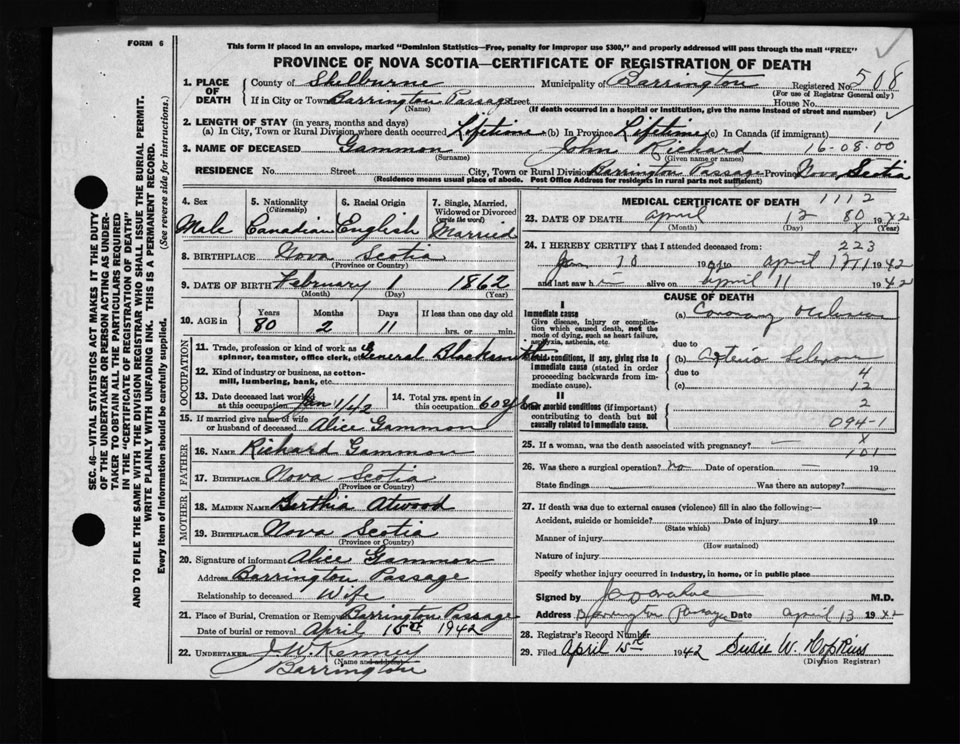 FORM 6
This form if placed in an envelope, marked "Dominion Statistics—Free, penalty for improper use $300," and properly addressed will pass through the mail "FREE"
PROVINCE OF NOVA SCOTIA—CERTIFICATE OF REGISTRATION OF DEATH
SEC. 46—VITAL STATISTICS ACT MAKES IT THE DUTY
OF THE UNDERTAKER OR PERSON ACTING AS UNDER-
TAKER TO OBTAIN ALL THE PARTICULARS REQUIRED
IN THE "CERTIFICATE OF REGISTRATION OF DEATH"
AND TO FILE THE SAME WITH THE DIVISION REGISTRAR WHO SHALL ISSUE THE BURIAL PERMIT.
WRITE PLAINLY WITH UNFADING INK. THIS IS A PERMANENT RECORD.
Every item of Information should be carefully supplied. (See reverse side for instructions.)
1. PLACE OF DEATH County of Shelburne Municipality of Barrington Registered No. 508
(For use of Registrar General only)
If in City or Town Barrington Passage Street House No.
(Name) (If death occurred in a hospital or institution, give the name instead of street and number)
2. LENGTH OF STAY (in years, months and days) 1
(a) In City, Town or Rural Division where death occurred Lifetime (b) In Province Lifetime (c) In Canada (if immigrant)
3. NAME OF DECEASED Gammon John Richard 16-08-00
(Surname) (Given name or names)
RESIDENCE No. Street City, Town or Rural Division Barrington Passage Province Nova Scotia
(Residence means usual place of abode. Post Office Address for residents in rural parts not sufficient)
4. Sex Male
5. Nationality (Citizenship) Canadian
6. Racial Origin English
7. Single, Married, Widowed or Divorced (write the word) Married
8. BIRTHPLACE Nova Scotia
(Province or Country)
9. DATE OF BIRTH February 1 1862
(Month) (Day) (Year)
10. AGE in Years 80 Months 2 Days 11 If less than one day old hrs. or min.
OCCUPATION
11. Trade, profession or kind of work as spinner, teamster, office clerk, etc. General Blacksmith
12. Kind of industry or business, as cotton-mill, lumbering, bank, etc.
13. Date deceased last worked at this occupation Jan 1/42
14. Total yrs. spent in this occupation 60 yrs
15. If married give name of wife or husband of deceased Alice Gammon
FATHER
16. NAME Richard Gammon
17. BIRTHPLACE Nova Scotia
(Province or Country)
MOTHER
18. MAIDEN NAME Berthia Atwood
19. BIRTHPLACE Nova Scotia
(Province or Country)
20. Signature of informant Alice Gammon
Address Barrington Passage
Relationship to deceased Wife
21. Place of Burial, Cremation or Removal Barrington Passage
Date of burial or removal April 15th 1942
22. UNDERTAKER J. W. Kenney
(Name and address)
Barrington
MEDICAL CERTIFICATE OF DEATH 1112
23. DATE OF DEATH April 12 80 1942
(Month) (Day) X (Year)
24. I HEREBY CERTIFY that I attended deceased from: 223
Jan 10 1942 to April 11 1942
and last saw h im alive on April 11 1942
CAUSE OF DEATH
I
Immediate cause
Give disease, injury or complication which caused death, not the mode of dying, such as heart failure, asphyxia, asthenia, etc.
(a) Coronary
due to
Morbid conditions, if any, giving rise to immediate cause (stated in order proceeding backwards from immediate cause).
(b)
due to 4
(c) 12
II
Other morbid conditions (if important) contributing to death but not causally related to immediate cause. 2
094-1
25. If a woman, was the death associated with pregnancy? — X
101
26. Was there a surgical operation? no Date of operation — 19
State findings Was there an autopsy?
27. If death was due to external causes (violence) fill in also the following:—
Accident, suicide or homicide? Date of injury 19
(State which)
Manner of injury
(How sustained)
Nature of injury
Specify whether injury occurred in industry, in home, or in public place
Signed by M.D.
Address Barrington Passage Date April 13 1942
28. Registrar's Record Number
29. Filed April 15th 1942 Susie W. Hopkins
(Division Registrar)